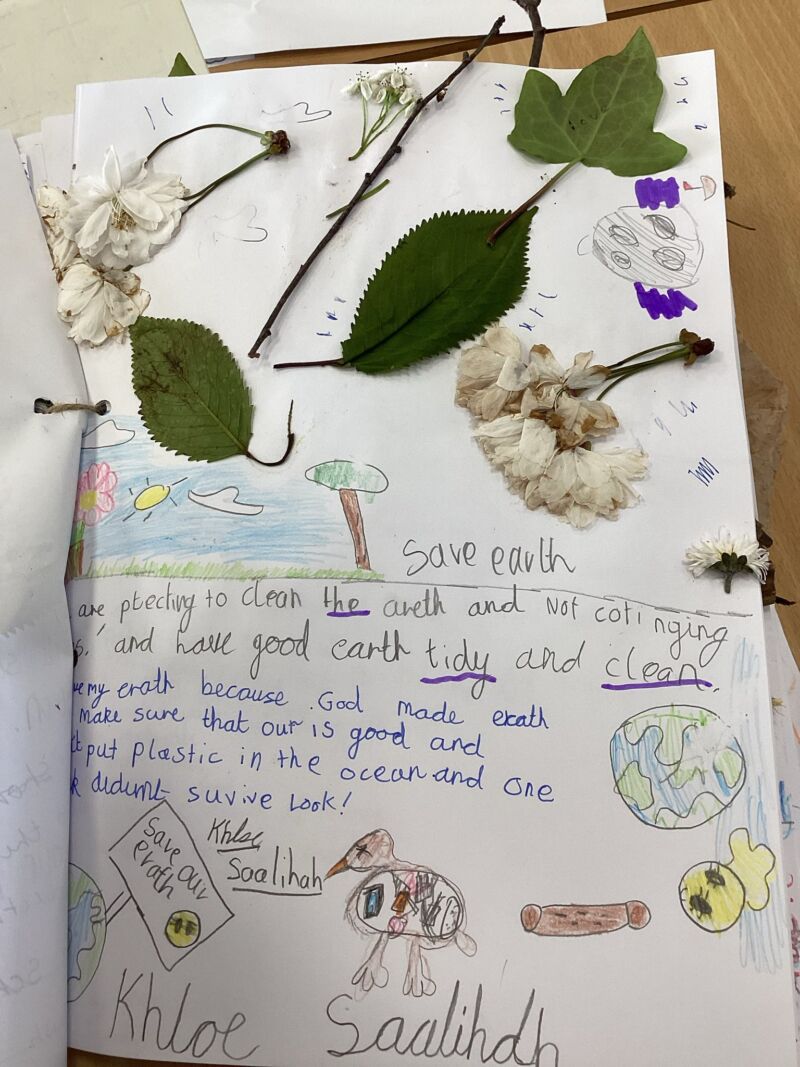 save earth
are ptecting to clean the areth and Not cotinging
s. and have good earth tidy and clean.
my erath because .God made erath
make sure that our is good and
put plastic in the ocean and one
didumt suvive Look!
Save our
erath
Khloe
Saalihah
Khloe Saalihah